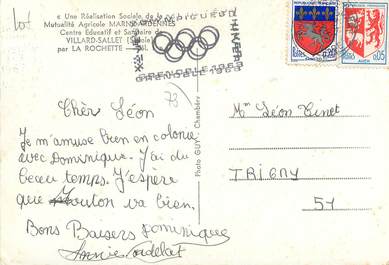 « Une Réalisation Sociale de la
Mutualité Agricole MARNE-ARDENNES
Centre Educatif et Sanitaire de
VILLARD-SALLET (Savoie)
par LA ROCHETTE
GRENOBLE 1968
78
Cher Léon
Je m'amuse bien en colonie
avec Dominique. J'ai du
beau temps. J'espère
que Mouton va bien.
Bons Baisers Dominique
Annie
Photo GUY - Chambéry
REPUBLIQUE FRANÇAISE
0,20
POSTES
0,05
AUCH
Mr Léon Cinet
TRIGNY
51